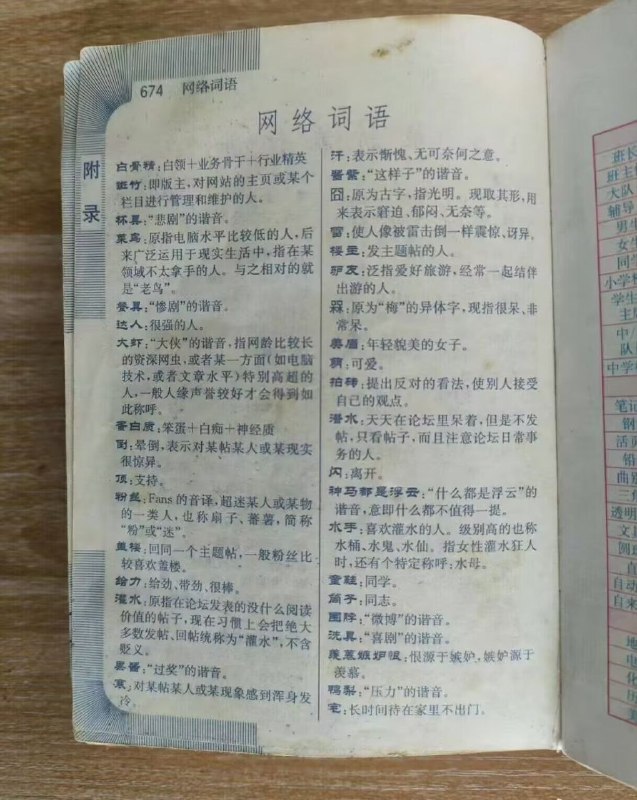 674 网络词语
网络词语
附
录
白骨精:白领+业务骨干+行业精英
斑竹:即版主,对网站的主页或某个
栏目进行管理和维护的人。
杯具:“悲剧”的谐音。
菜鸟:原指电脑水平比较低的人,后
来广泛运用于现实生活中,指在某
领域不太拿手的人。与之相对的就
是“老鸟”。
餐具:“惨剧”的谐音。
达人:很强的人。
大虾:“大侠”的谐音,指网龄比较长
的资深网虫,或者某一方面(如电脑
技术,或者文章水平)特别高超的
人,一般人缘声誉较好才会得到如
此称呼。
蛋白质:笨蛋+白痴+神经质
倒:晕倒,表示对某帖某人或某现实
很惊异。
顶:支持。
粉丝:Fans的音译,超迷某人或某物
的一类人,也称扇子、蕃薯,简称
“粉”或“迷”。
盖楼:回同一个主题帖,一般粉丝比
较喜欢盖楼。
给力:给劲、带劲、很棒。
灌水:原指在论坛发表的没什么阅读
价值的帖子,现在习惯上会把绝大
多数发帖、回帖统称为“灌水”,不含
贬义。
果酱:“过奖”的谐音。
寒:对某帖某人或某现象感到浑身发
冷。
汗:表示惭愧、无可奈何之意。
酱紫:“这样子”的谐音。
囧:原为古字,指光明。现取其形,用
来表示窘迫、郁闷、无奈等。
雷:使人像被雷击倒一样震惊、讶异。
楼主:发主题帖的人。
驴友:泛指爱好旅游,经常一起结伴
出游的人。
槑:原为“梅”的异体字,现指很呆、非
常呆。
美眉:年轻貌美的女子。
萌:可爱。
拍砖:提出反对的看法,使别人接受
自己的观点。
潜水:天天在论坛里呆着,但是不发
帖,只看帖子,而且注意论坛日常事
务的人。
闪:离开。
神马都是浮云:“什么都是浮云”的
谐音,意即什么都不值得一提。
水手:喜欢灌水的人。级别高的也称
水桶、水鬼、水仙。指女性灌水狂人
时,还有个特定称呼:水母。
童鞋:同学。
筒子:同志。
围脖:“微博”的谐音。
洗具:“喜剧”的谐音。
羡慕嫉妒恨:恨源于嫉妒,嫉妒源于
羡慕。
鸭梨:“压力”的谐音。
宅:长时间待在家里不出门。
班长
班主任
大队
辅导
男生
女生
同学
小学
学生
主席
中
队
中学
笔记
钢
活页
铅
曲别
三
透明
文具
圆
自动
自来
地
电
化